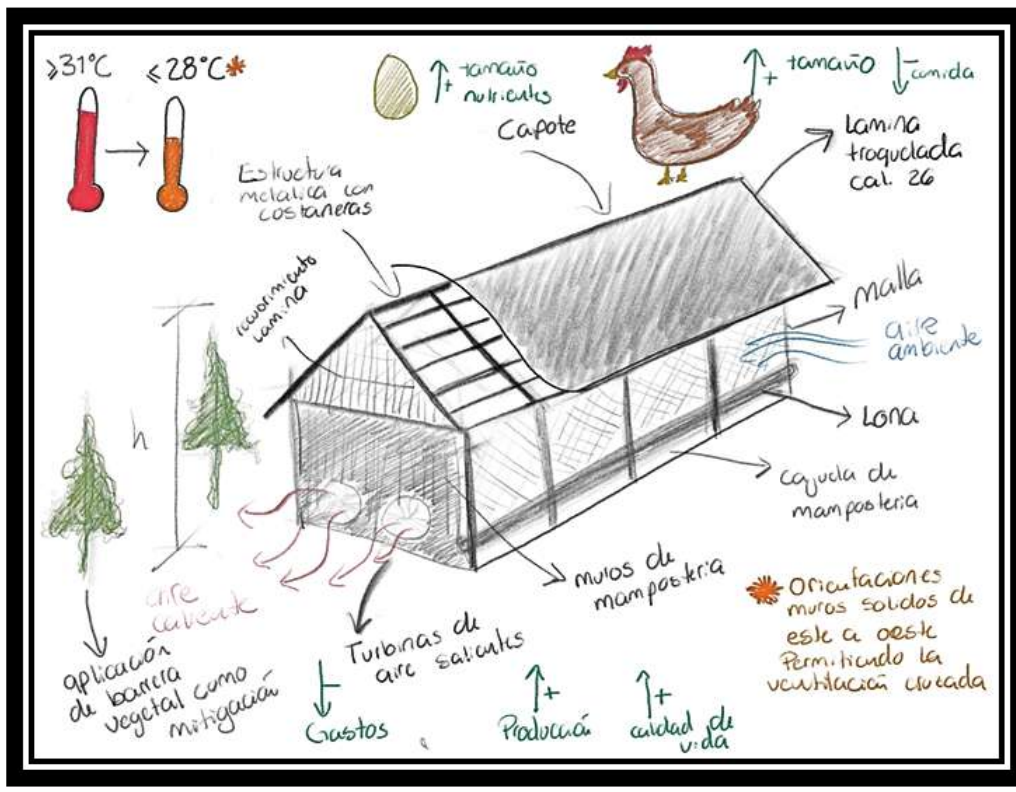 ≥31°C
≤28°C*
↑+ tamaño
nutrientes
↑+ tamaño ↓- comida
Capote
Lamina
troquelada
cal. 26
Estructura
metalica con
costaneras
recubrimiento
lamina
Malla
aire
ambiente
h
Lona
cajuela de
mamposteria
muros de
mamposteria
aire
caliente
Turbinas de
aire salientes
aplicación
de barrera
vegetal como
mitigación
* Orientaciones
muros solidos de
este a oeste
Permitiendo la
ventilación cruzada
↓-
Gastos
↑+
Producción
↑+
calidad de
vida